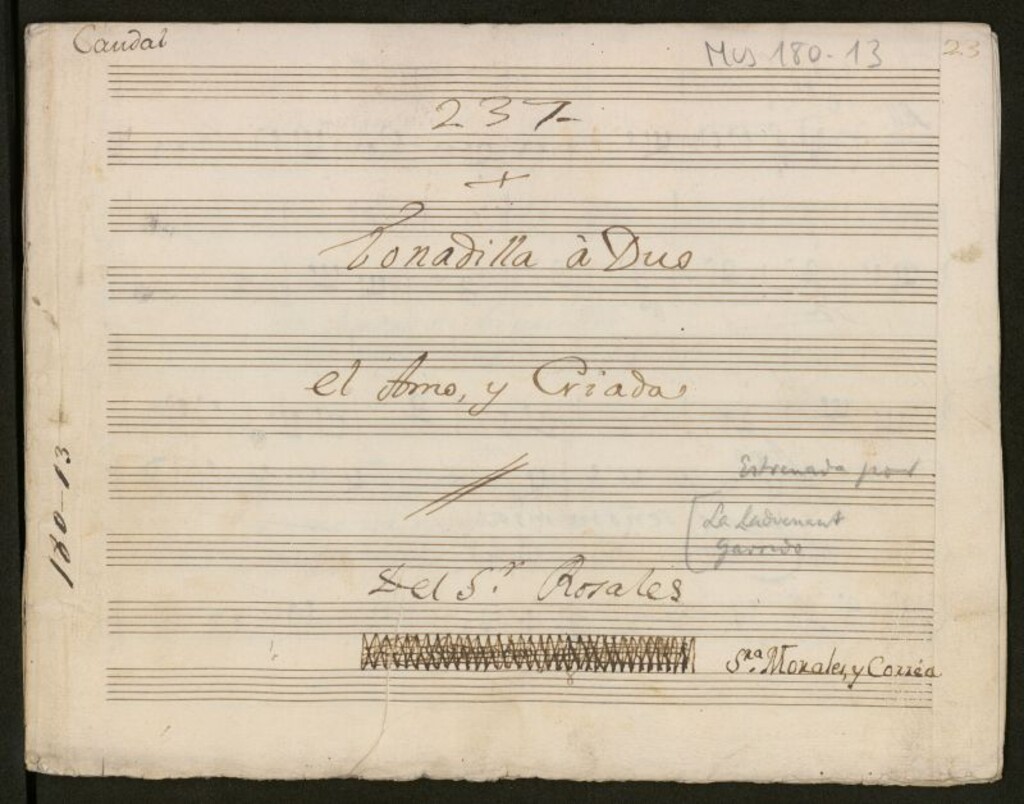 Caudal
Mus 180-13
23
237-
+
Tonadilla à Duo
el Amo, y Criada
Estrenada por
[La Ladvenant
Garrido
Del S.r Rosales
S.ra Morales, y Correa
180-13